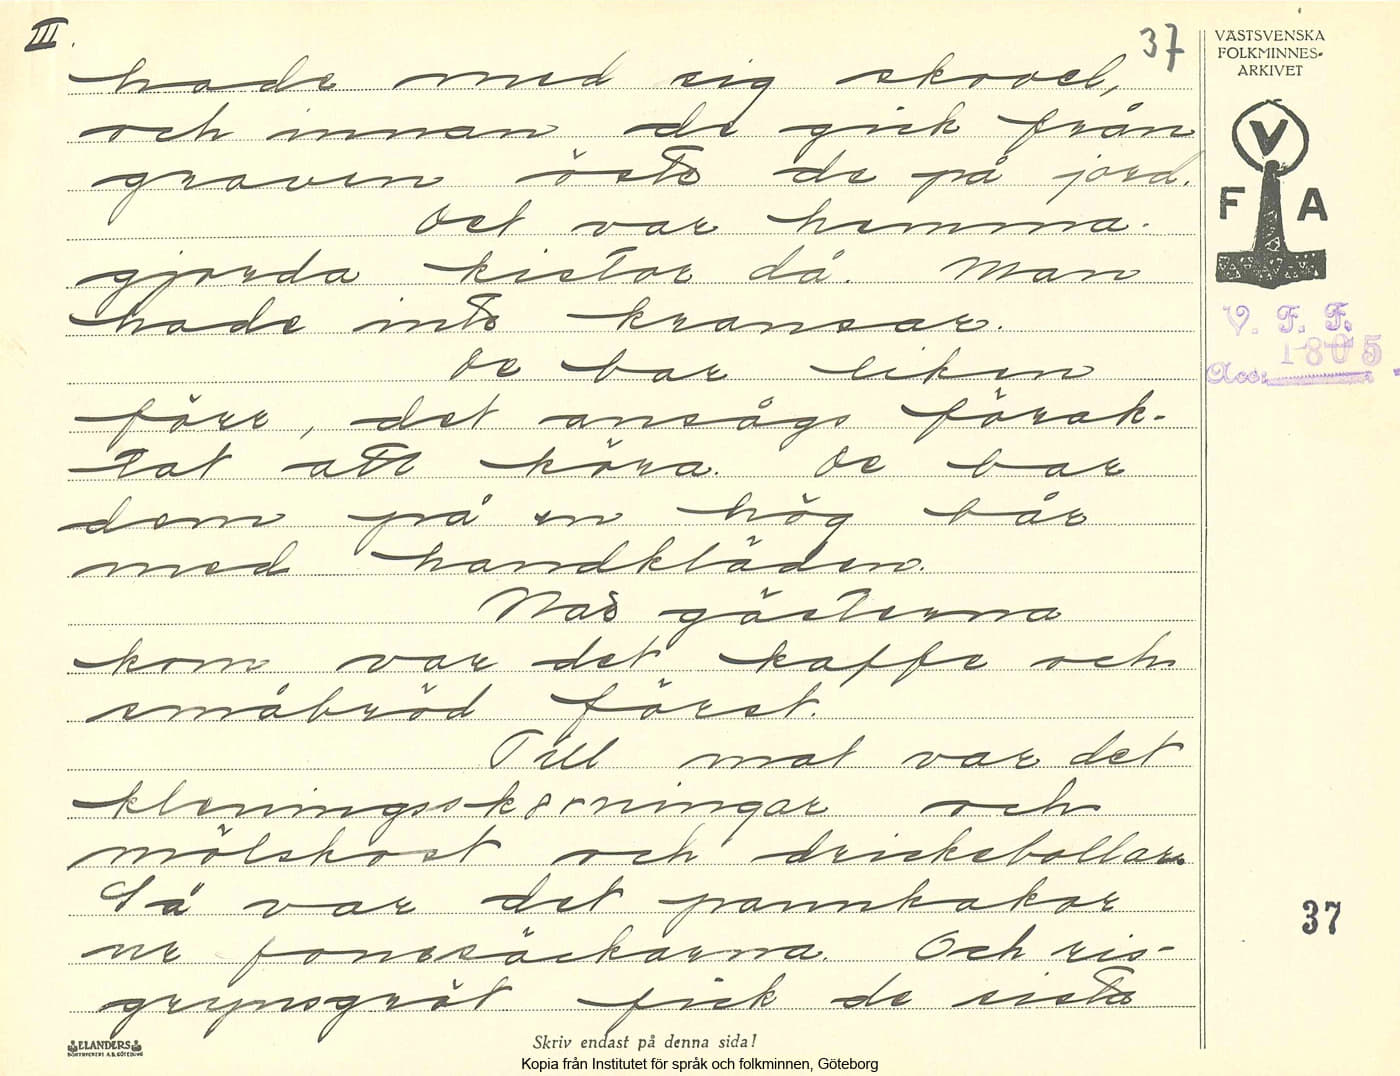 III.
37
hade med sig skovel,
och innan de gick från
graven öste de på jord.
Det var hemma-
gjorda kistor då. Man
hade inte kransar.
De bar liken
förr, det ansågs förak-
tat att köra. De bar
dem på en hög bår
med handkläden.
När gästerna
kom var det kaffe och
småbröd först.
Till mat var det
kleningsskorningar och
mölskost och dricksbollar.
Så var det pannkakor
ur fonssäckarna. Och ris-
grynsgröt fick de sista
VÄSTSVENSKA
FOLKMINNES-
ARKIVET
V
F A
V. F. F.
1805
Acc.
37
ELANDERS
BOKTRYCKERI A.B. GÖTEBORG
Skriv endast på denna sida!
Kopia från Institutet för språk och folkminnen, Göteborg